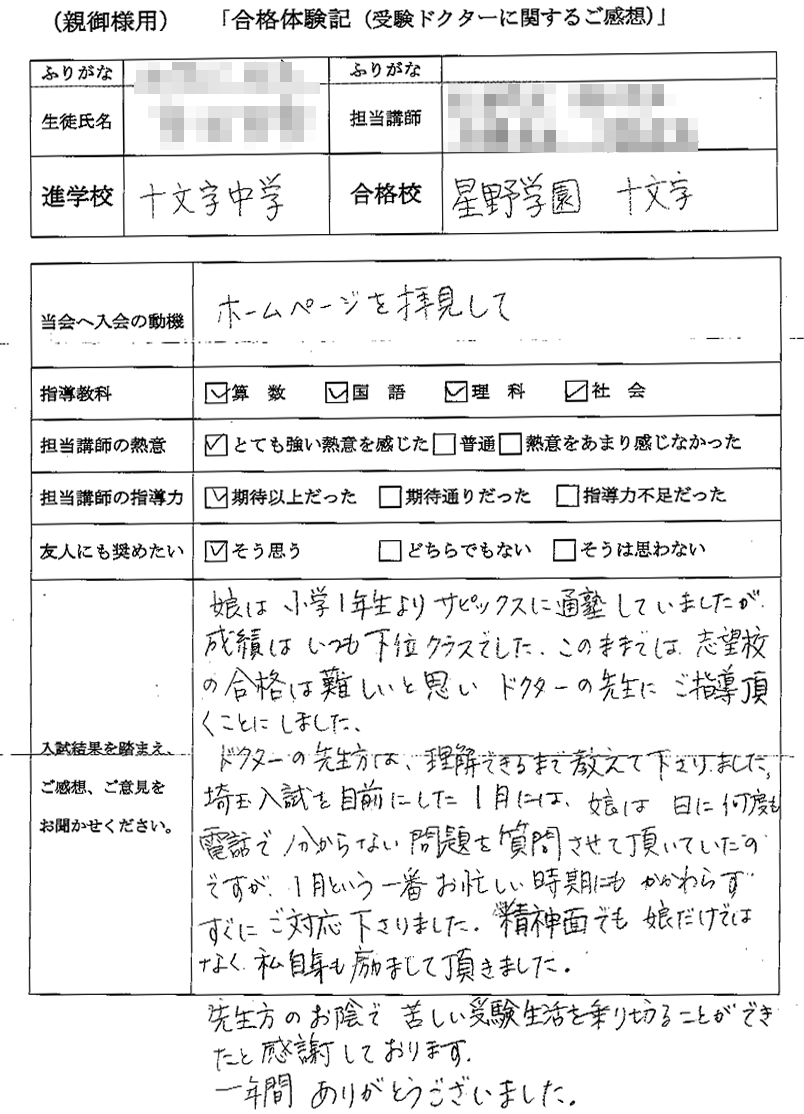 （親御様用）　「合格体験記（受験ドクターに関するご感想）」
ふりがな　ふりがな
生徒氏名　担当講師
進学校　十文字中学　合格校　星野学園　十文字
当会へ入会の動機　ホームページを拝見して
指導教科　☑算　数　☑国　語　☑理　科　☑社　会
担当講師の熱意　☑とても強い熱意を感じた　□普通　□熱意をあまり感じなかった
担当講師の指導力　☑期待以上だった　□期待通りだった　□指導力不足だった
友人にも奨めたい　☑そう思う　□どちらでもない　□そうは思わない
入試結果を踏まえ、
ご感想、ご意見を
お聞かせください。
娘は 小学1年生より サピックスに通塾していましたが、
成績は いつも下位クラスでした。このままでは、志望校
の合格は難しいと思い ドクターの先生に ご指導頂
くことにしました。
ドクターの先生方は、理解できるまで教えて下さりました。
埼玉入試を目前にした1月には、娘は 日に何度も
電話で分からない問題を質問させて頂いていたの
ですが、1月という一番お忙しい時期にも かかわらず
すぐに ご対応下さりました。精神面でも 娘だけでは
なく 私自身も励まして頂きました。
先生方のお陰で 苦しい受験生活を乗り切ることができ
たと感謝しております。
一年間 ありがとうございました。